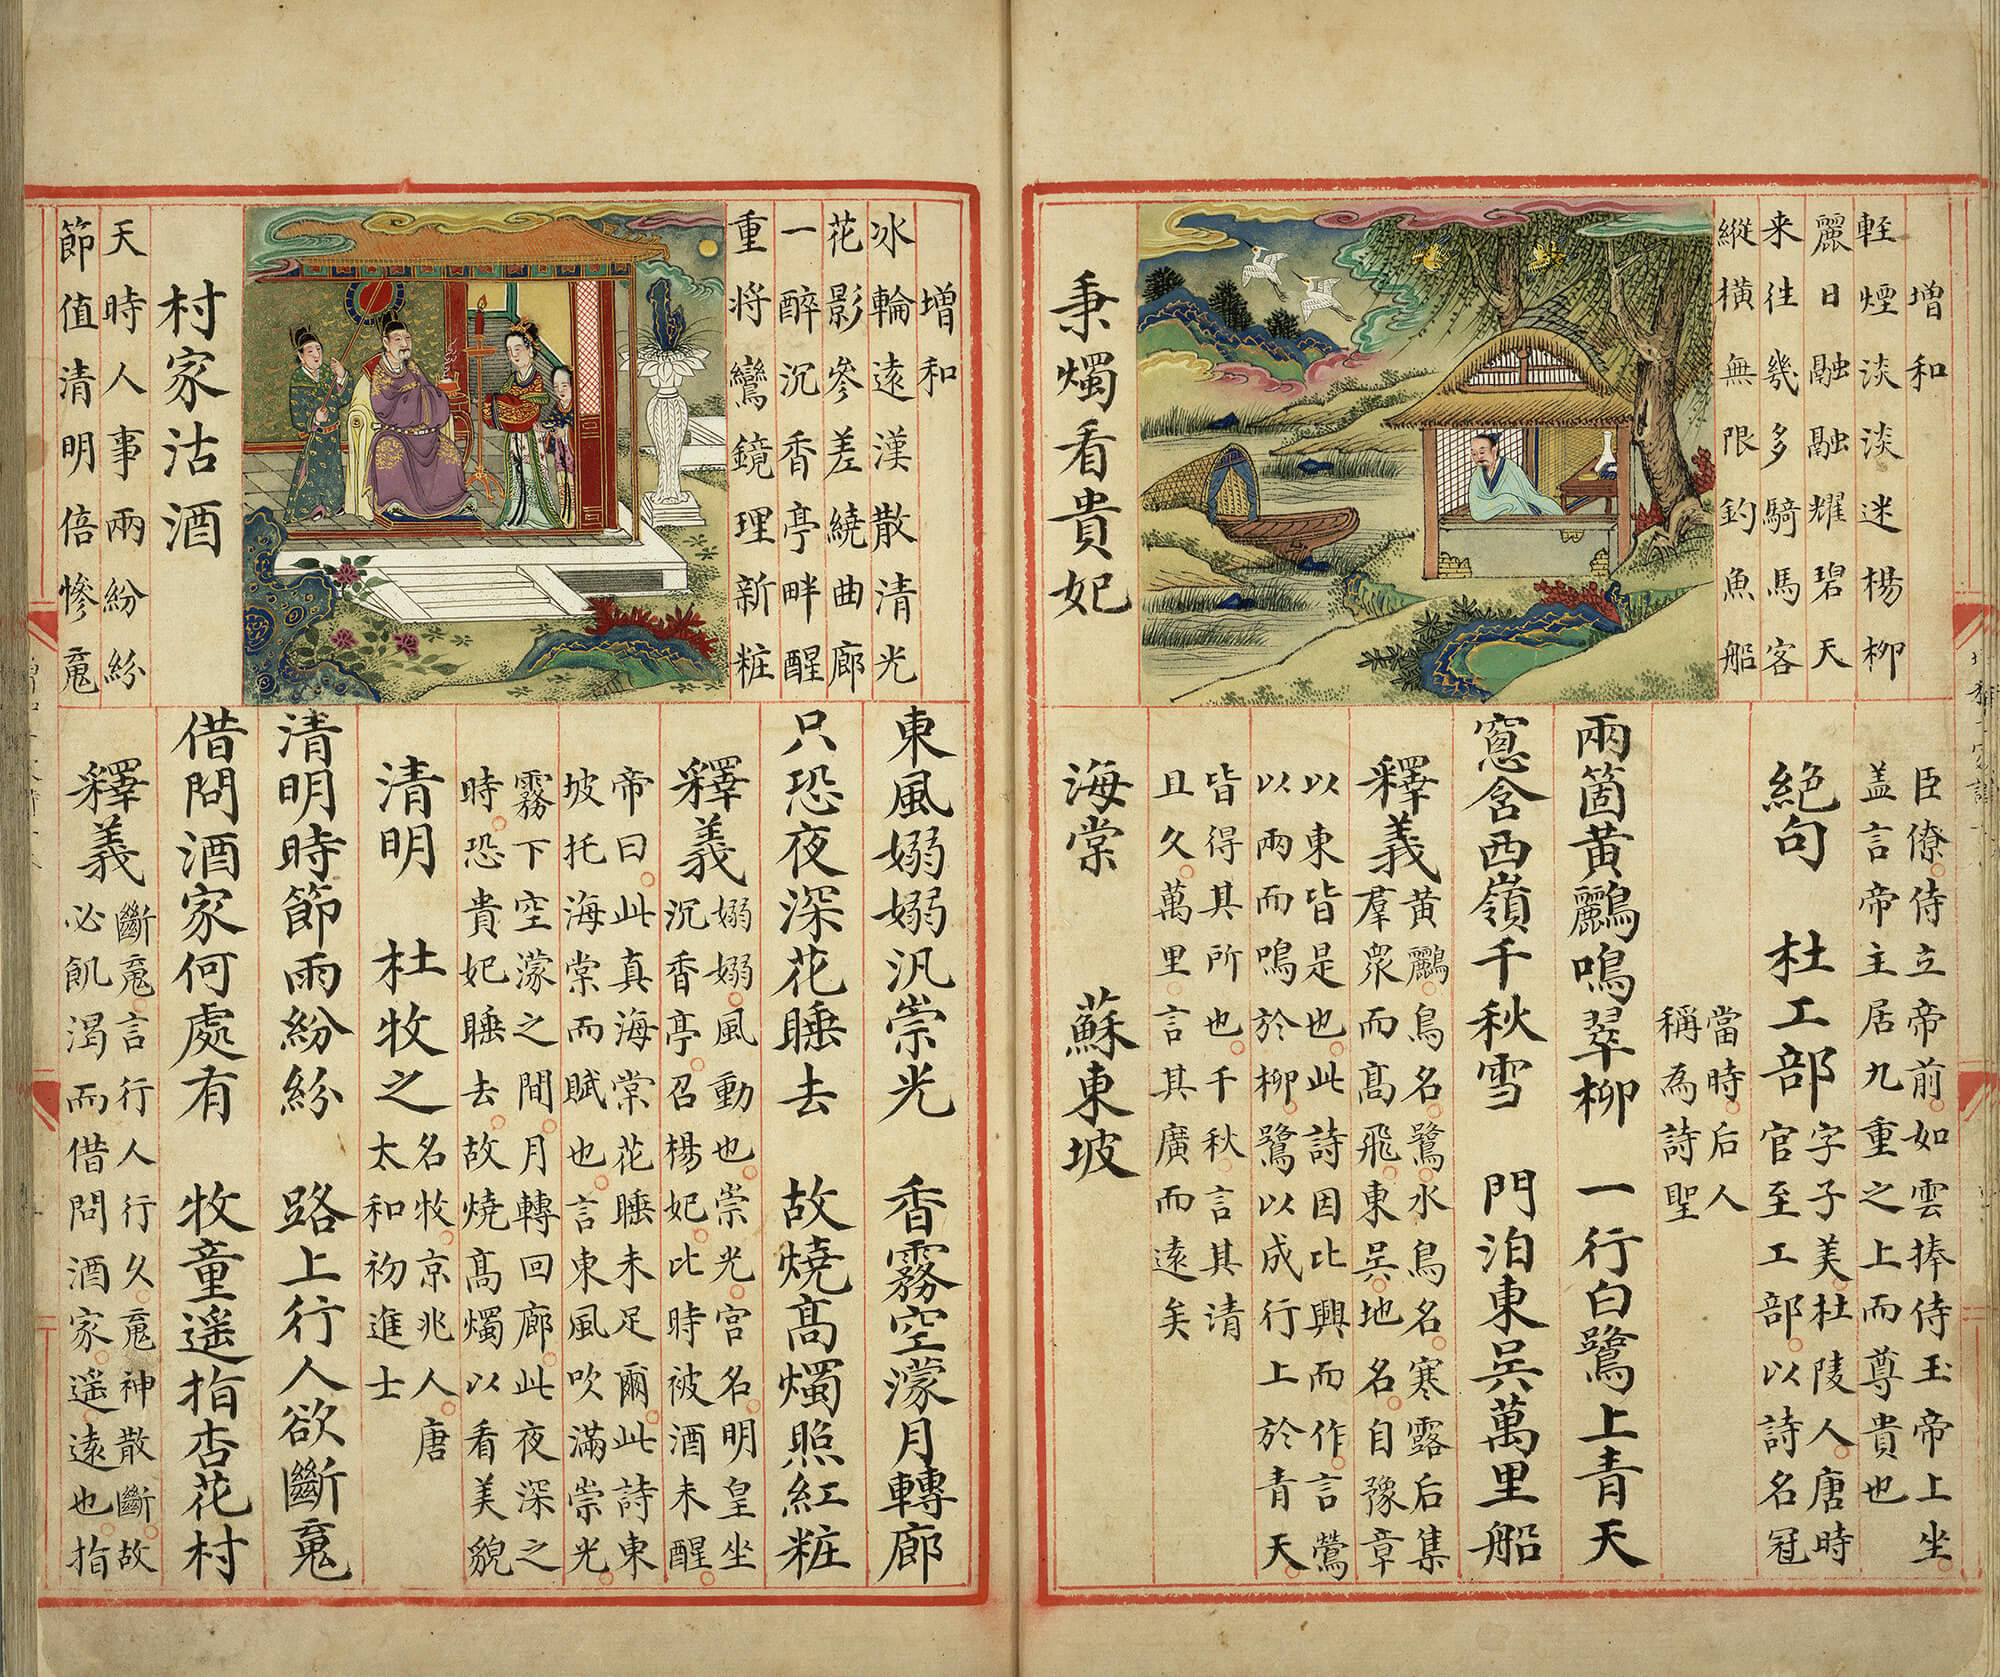 增和
輕煙淡淡迷楊柳
麗日融融耀碧天
来往幾多騎馬客
縱橫無限釣魚船
臣僚侍立帝前如雲捧侍玉帝上坐
盖言帝主居九重之上而尊貴也
絶句 杜工部 字子美杜陵人唐時
官至工部以詩名冠
當時后人
稱為詩聖
兩箇黄鸝鳴翠柳 一行白鷺上青天
窻含西嶺千秋雪 門泊東吴萬里船
釋義 黄鸝鳥名鷺水鳥名寒露后集
羣衆而髙飛東吴地名自豫章
以東皆是也此詩因比興而作言鶯
以兩而鳴於柳鷺以成行上於青天
皆得其所也千秋言其清
且久萬里言其廣而遠矣
秉燭看貴妃
海棠 蘇東坡
增和
冰輪遠漢散清光
花影參差繞曲廊
一醉沉香亭畔醒
重将鸞鏡理新粧
東風嫋嫋汎崇光 香霧空濛月轉廊
只恐夜深花睡去 故燒髙燭照紅粧
釋義 嫋嫋風動也崇光宫名明皇坐
沉香亭召楊妃比時被酒未醒
帝曰此真海棠花睡未足爾此詩東
坡托海棠而賦也言東風吹滿崇光
霧下空濛之間月轉回廊此夜深之
時恐貴妃睡去故燒髙燭以看美貌
村家沽酒
清明 杜牧之 名牧京兆人唐
太和初進士
天時人事兩紛紛
節值清明倍慘䰟
清明時節雨紛紛 路上行人欲斷䰟
借問酒家何處有 牧童遥指杏花村
釋義 斷䰟言行人行久䰟神散斷故
必飢渴而借問酒家遥遠也指